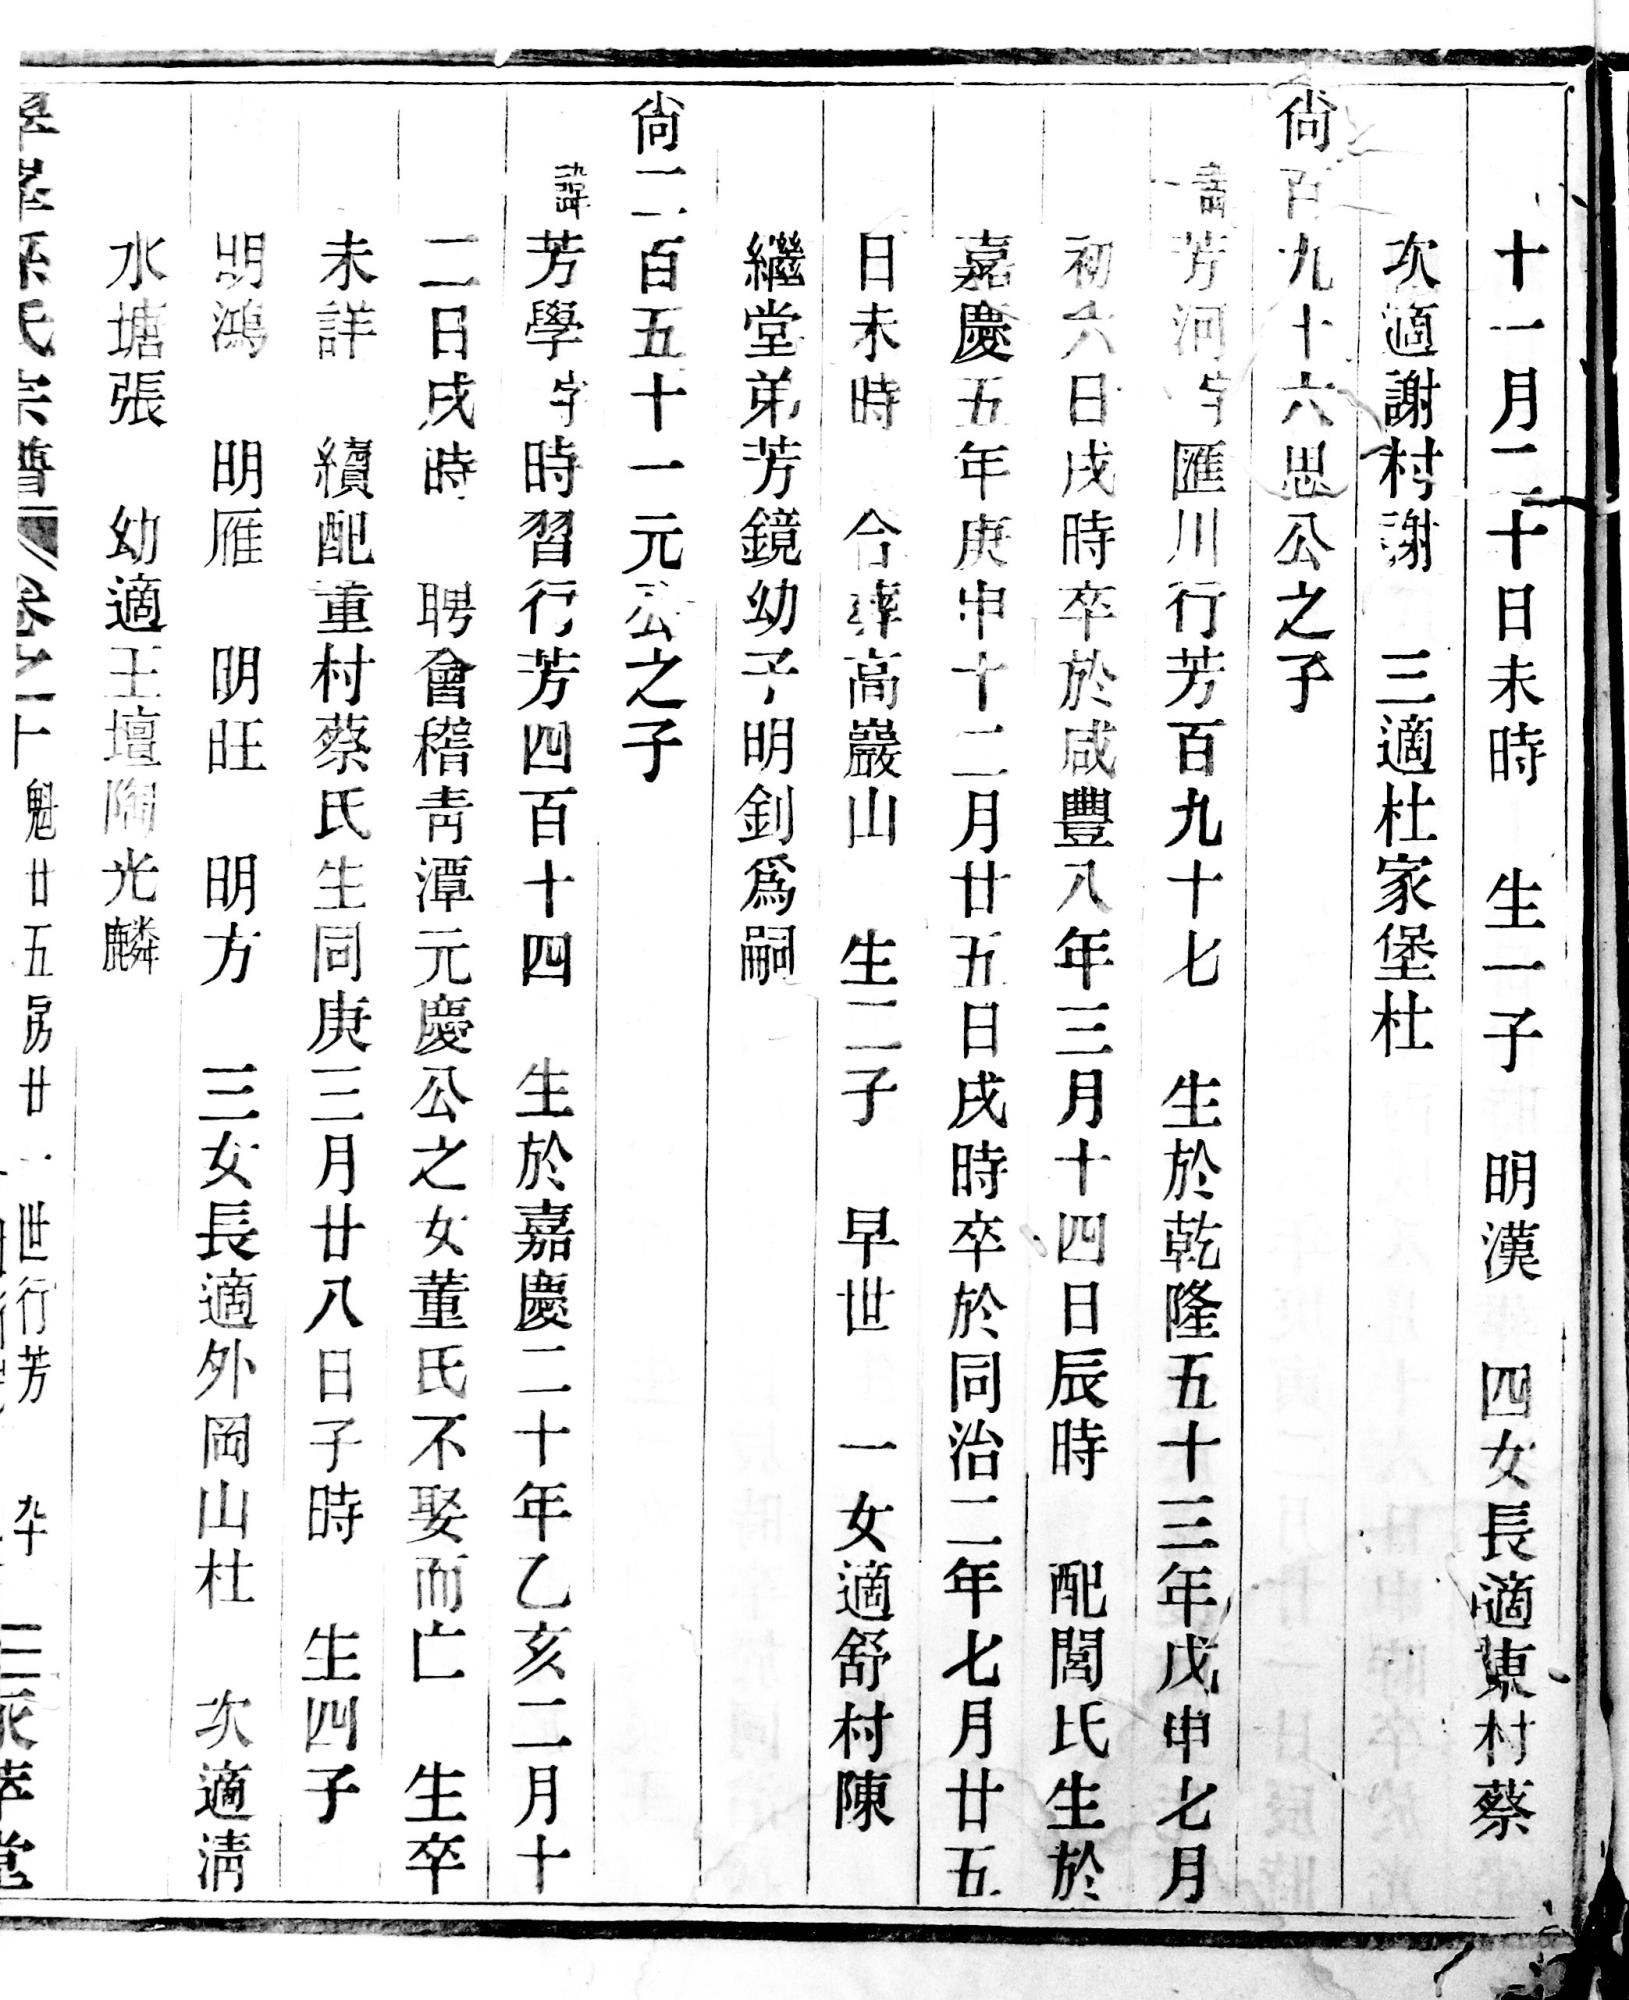 十一月二十日未時 生一子 明漢 四女長適東村蔡
次適謝村謝 三適杜家堡杜
尙百九十六思公之子
芳河字匯川行芳百九十七 生於乾隆五十三年戊申七月
初六日戌時卒於咸豐八年三月十四日辰時 配閻氏生於
嘉慶五年庚申十二月廿五日戌時卒於同治二年七月廿五
日未時 合葬高巖山 生二子 早世 一女適舒村陳
繼堂弟芳鏡幼子明釗爲嗣
尙二百五十一元公之子
諱芳學字時習行芳四百十四 生於嘉慶二十年乙亥二月十
二日戌時 聘會稽靑潭元慶公之女董氏不娶而亡 生卒
未詳 續配董村蔡氏生同庚三月廿八日子時 生四子
明鴻 明雁 明旺 明方 三女長適外岡山杜 次適淸
水塘張 幼適王壇陶光麟
孫氏宗譜 卷之十 魁廿五房廿一世行芳